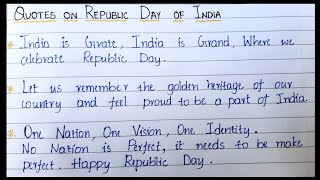 QUOTES ON REPUBLIC DAY OF INDIA
* India is Grate, India is Grand, Where we
celebrate Republic Day.
* Let us remember the golden heritage of our
country and feel proud to be a part of India.
* One Nation, One Vision, One Identity.
No Nation is Perfect, it needs to be make
perfect. Happy Republic Day.